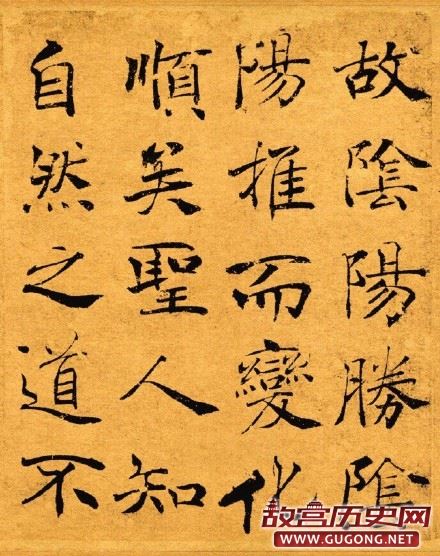 故陰陽勝陰
陽推而變化
順矣聖人知
自然之道不
故宫历史网
WWW.GUGONG.NET